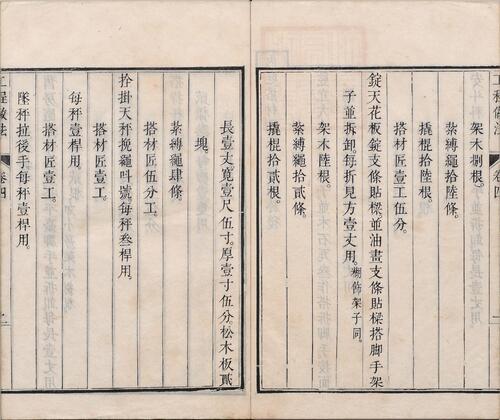 架木捌根。
紮縛繩拾陸條。
撬棍拾陸根。
搭材匠壹工伍分。
錠天花板錠支條貼樑並油畫支條貼樑搭腳手架
子並拆卸每折見方壹丈用。糊飾架子同。
架木陸根。
紮縛繩拾貳條。
撬棍拾貳根。
長壹丈寬壹尺伍寸厚壹寸伍分松木板貳
塊。
紮縛繩肆條。
搭材匠伍分工。
拴掛天秤挽繩叫號每秤叁桿用。
搭材匠壹工。
每秤壹桿用
搭材匠壹工。
墜秤拉後手每秤壹桿用。
工程做法 卷四 二